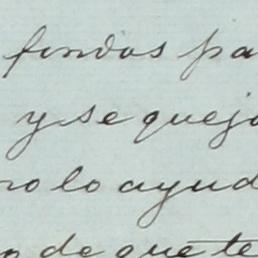 fondos pa
y se quejo
no lo ayud
de que te